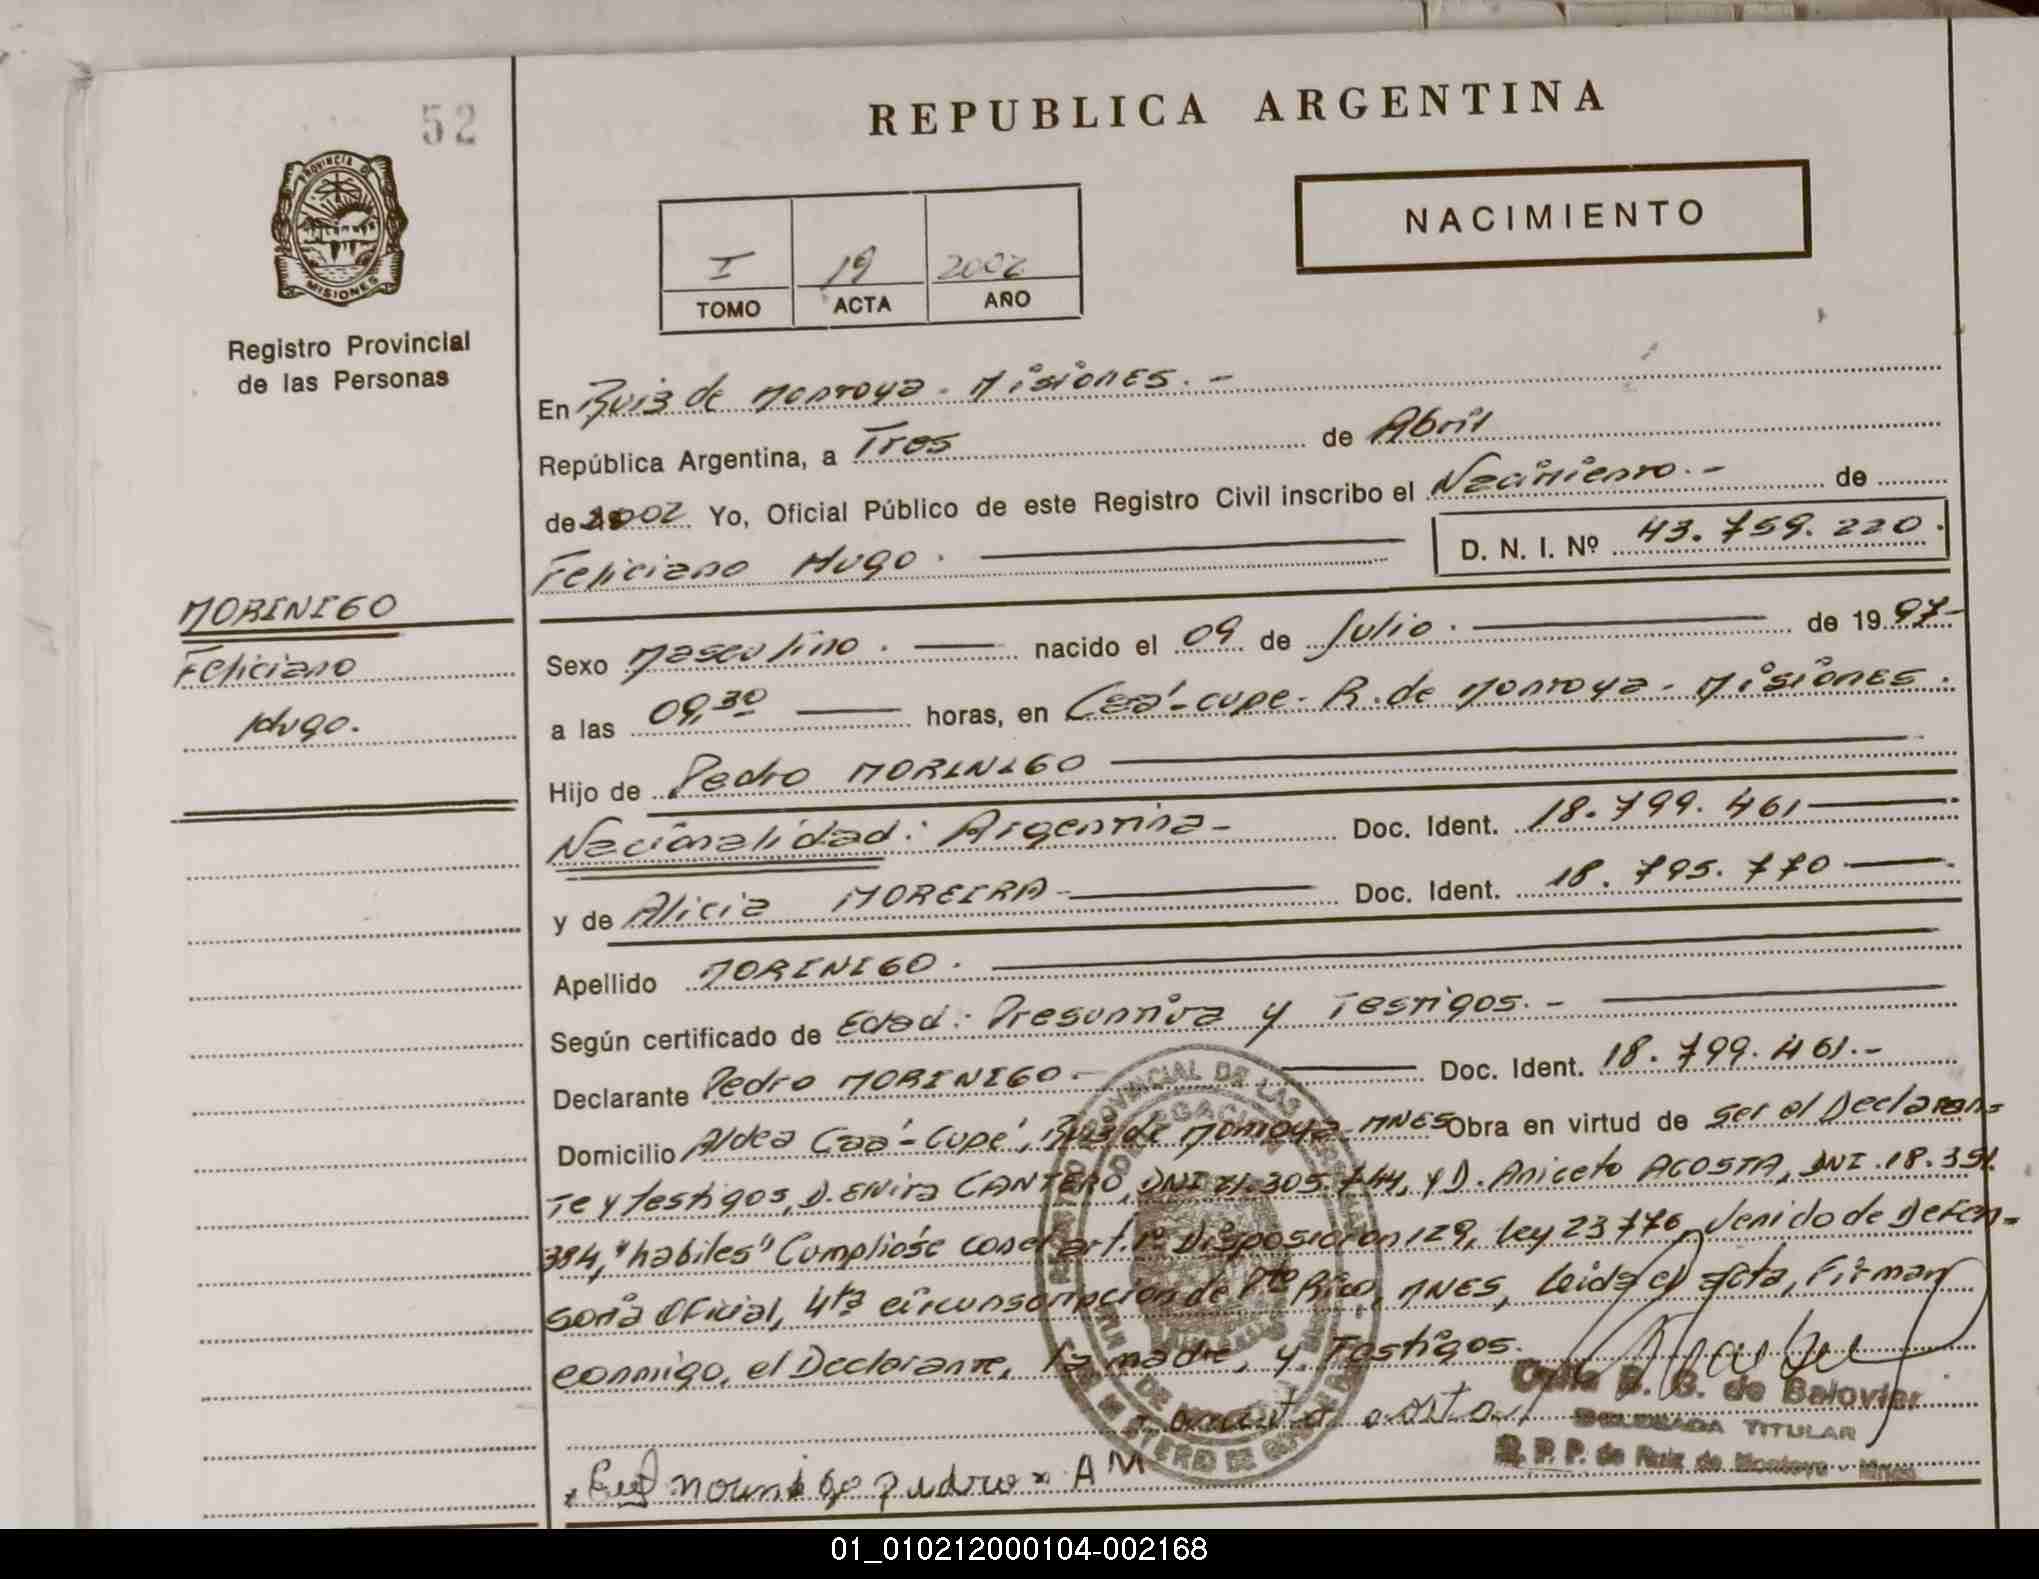 52
REPUBLICA ARGENTINA
PROVINCIA DE MISIONES
NACIMIENTO
I 19 2002
TOMO ACTA AÑO
Registro Provincial
de las Personas
En Ruiz de Montoya - Misiones. -
República Argentina, a Tres de Abril
de 2002 Yo, Oficial Público de este Registro Civil inscribo el Nacimiento. - de
Feliciano Hugo. D. N. I. Nº 43.759.220.
MORINIGO
Feliciano
Hugo.
Sexo Masculino. nacido el 09 de Julio. de 1997-
a las 09,30 horas, en Caá-cupe - R. de Montoya - Misiones.
Hijo de Pedro MORINIGO
Nacionalidad: Argentina - Doc. Ident. 18.799.461
y de Alicia MOREIRA - Doc. Ident. 18.795.770
Apellido MORINIGO.
Según certificado de Edad: Presuntiva y Testigos. -
Declarante Pedro MORINIGO - Doc. Ident. 18.799.461.-
Domicilio Aldea Caá-Cupé, Ruiz de Montoya - MNES Obra en virtud de ser el Declaran=
te y testigos, D. Elvira CANTERO, DNI 21.305.744, y D. Aniceto ACOSTA, DNI. 18.351.
384, "habiles" Cumplióse con el art. 1º Disposición 129, Ley 23776, Venido de Defen=
soria Oficial, 4ta circunscripción de Pto Rico, MNES, Leida el acta, Firman
conmigo, el Declarante, la madre, y Testigos.
B. G. de Balovier
DELEGADA TITULAR
R. P. P. de Ruiz de Montoya - Mnes.
pedro x AM
01_010212000104-002168